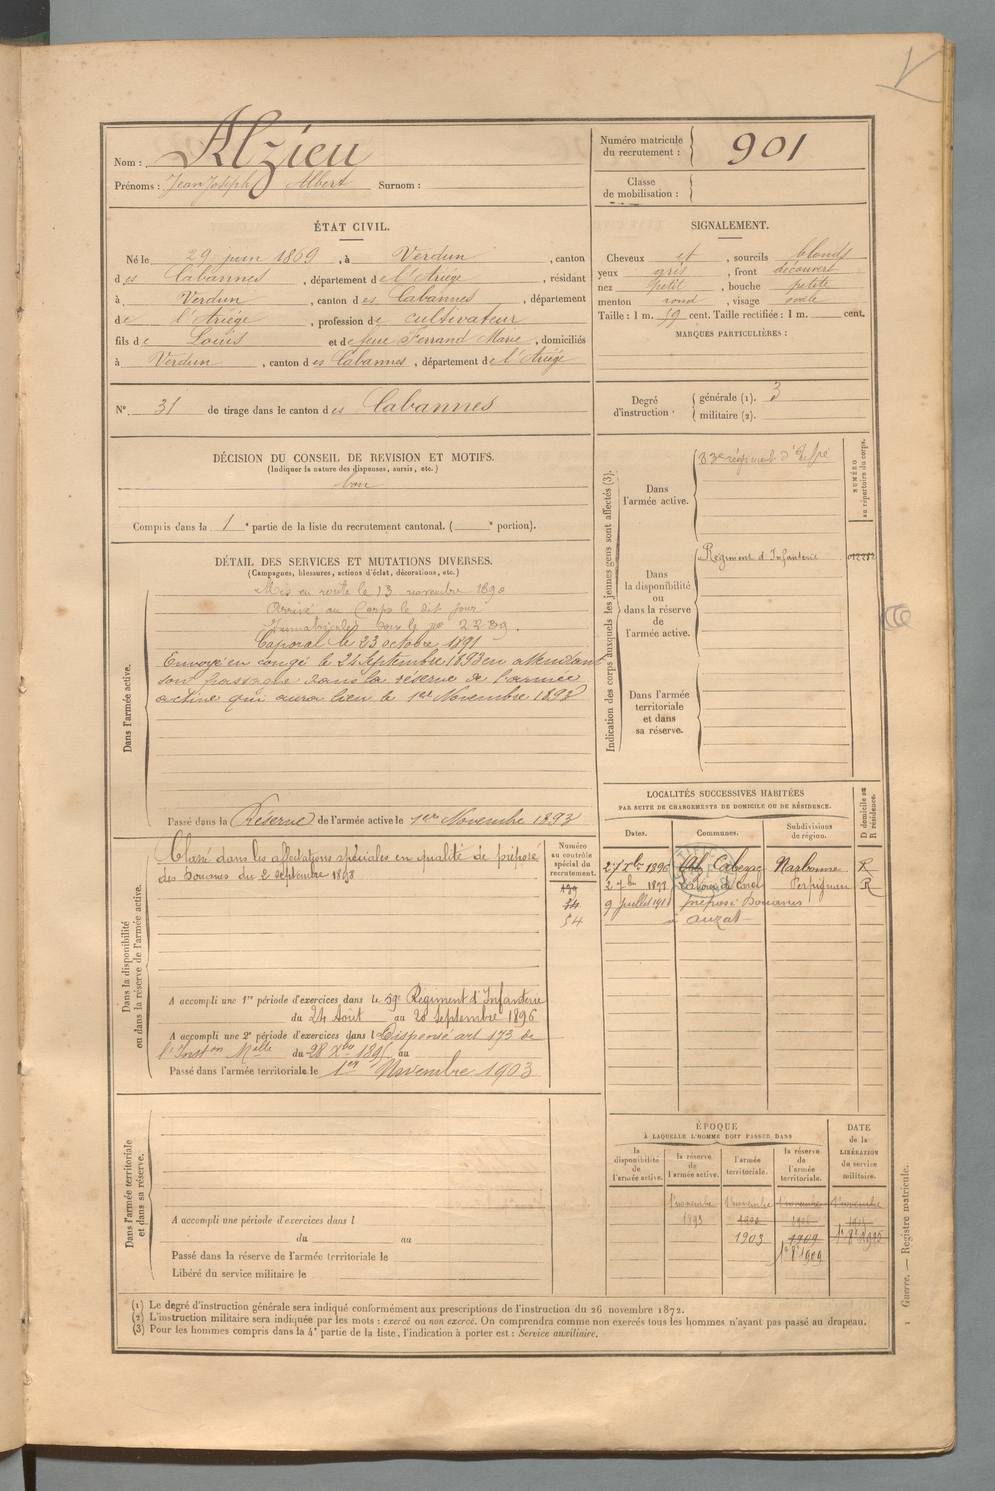 Nom : Alzieu
Prénoms : Jean Joseph Albert Surnom :
Numéro matricule du recrutement : 901
Classe de mobilisation :
ÉTAT CIVIL.
Né le 29 juin 1869, à Verdun, canton
des Cabannes, département de l'Ariége, résidant
à Verdun, canton des Cabannes, département
de l'Ariége, profession de cultivateur
fils de Louis et de feue Ferrand Marie, domiciliés
à Verdun, canton des Cabannes, département de l'Ariége
SIGNALEMENT.
Cheveux et, sourcils blonds
yeux gris, front découvert
nez petit, bouche petite
menton rond, visage ovale
Taille : 1 m. 59 cent. Taille rectifiée : 1 m. cent.
MARQUES PARTICULIÈRES :
N° 31 de tirage dans le canton des Cabannes
Degré d'instruction : générale (1). 3
militaire (2).
DÉCISION DU CONSEIL DE REVISION ET MOTIFS.
(Indiquer la nature des dispenses, sursis, etc.)
bon
Compris dans la 1e partie de la liste du recrutement cantonal. ( e portion).
DÉTAIL DES SERVICES ET MUTATIONS DIVERSES.
(Campagnes, blessures, actions d'éclat, décorations, etc.)
Dans l'armée active.
Mis en route le 13 novembre 1890
Arrivé au Corps le dit jour
Immatriculé sous le no 2239.
Caporal le 23 octobre 1891
Envoyé en congé le 24 Septembre 1893 en attendant
son passage dans la réserve de l'armée
active qui aura lieu le 1er Novembre 1893
Passé dans la Réserve de l'armée active le 1er Novembre 1893
Indication des corps auxquels les jeunes gens sont affectés (3).
NUMÉRO au répertoire du corps.
Dans l'armée active.
83e régiment d'Infie
Dans la disponibilité ou dans la réserve de l'armée active.
Régiment d'Infanterie
Dans l'armée territoriale et dans sa réserve.
Dans la disponibilité ou dans la réserve de l'armée active.
Classé dans les affectations spéciales en qualité de préposé
des Douanes du 2 septembre 1898
Numéro au contrôle spécial du recrutement.
54
54
A accompli une 1re période d'exercices dans le 59e Régiment d'Infanterie
du 24 Août au 20 septembre 1896
A accompli une 2e période d'exercices dans l Dispensé art 173 de
l'Inston Melle du 28 Xbre 1895 au
Passé dans l'armée territoriale le 1er Novembre 1903
LOCALITÉS SUCCESSIVES HABITÉES
PAR SUITE DE CHANGEMENTS DE DOMICILE OU DE RÉSIDENCE.
Dates. Communes. Subdivisions de région. D domicile ou R résidence.
27 Xbre 1896 Cabezac Narbonne R
2 7bre 1898 Perpignan R
9 Juillet 1911 préposé Douanes
à Auzat
Dans l'armée territoriale et dans sa réserve.
A accompli une période d'exercices dans l
du au
Passé dans la réserve de l'armée territoriale le
Libéré du service militaire le
ÉPOQUE
À LAQUELLE L'HOMME DOIT PASSER DANS
la disponibilité de l'armée active. la réserve de l'armée active. l'armée territoriale. la réserve de l'armée territoriale. DATE de la LIBÉRATION du service militaire.
1er novembre 1er novembre 1er novembre 1er novembre
1893
1903 1909
1er 8e 1909
(1) Le degré d'instruction générale sera indiqué conformément aux prescriptions de l'instruction du 26 novembre 1872.
(2) L'instruction militaire sera indiquée par les mots : exercé ou non exercé. On comprendra comme non exercés tous les hommes n'ayant pas passé au drapeau.
(3) Pour les hommes compris dans la 4e partie de la liste, l'indication à porter est : Service auxiliaire.
1 Guerre. — Registre matricule.